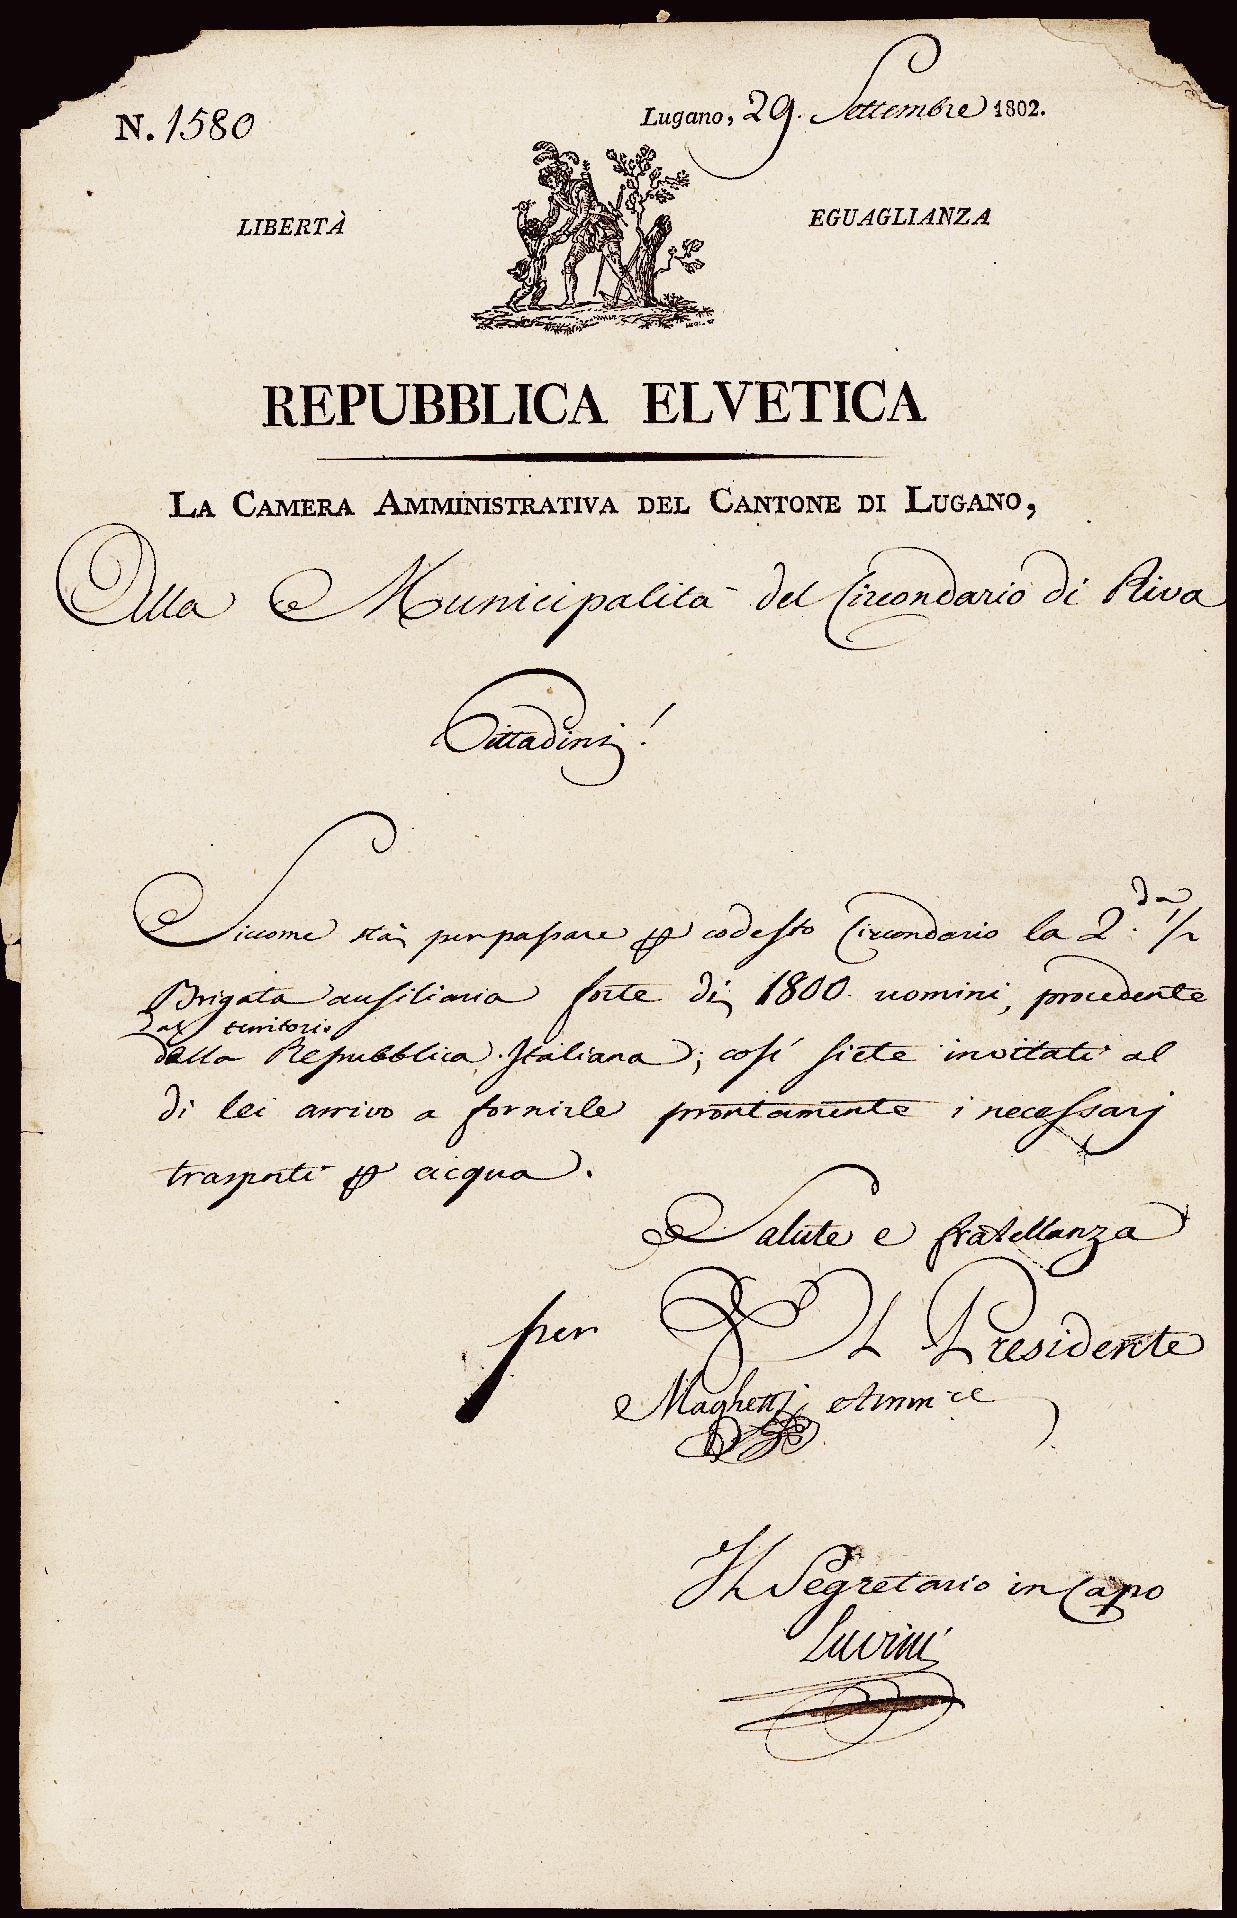 N. 1580
Lugano, 29. Settembre 1802.
LIBERTÀ
EGUAGLIANZA
REPUBBLICA ELVETICA
LA CAMERA AMMINISTRATIVA DEL CANTONE DI LUGANO,
Alla Municipalità del Circondario di Riva
Cittadini!
Siccome stà per passare p codesto Circondario la 2.da 1/2
Brigata ausiliaria forte di 1800. uomini, procedente
dal territorio
della Repubblica Italiana; così siete invitati al
di lei arrivo a fornirle prontamente i necessarj
trasporti p acqua.
Salute e fratellanza
per Il Presidente
Maghetti Amm.re
Il Segretario in Capo
Luvini